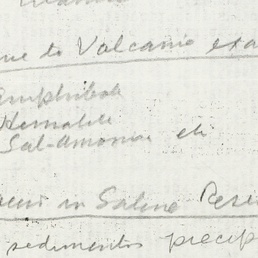 to Volcanic exa
Amphibole
Hematite
Sal-amoniac etc
in Saline Resi
sediments precip